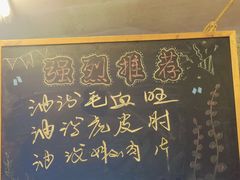 强烈推荐
油泼毛血旺
油泼虎皮肘
油泼灿肉片